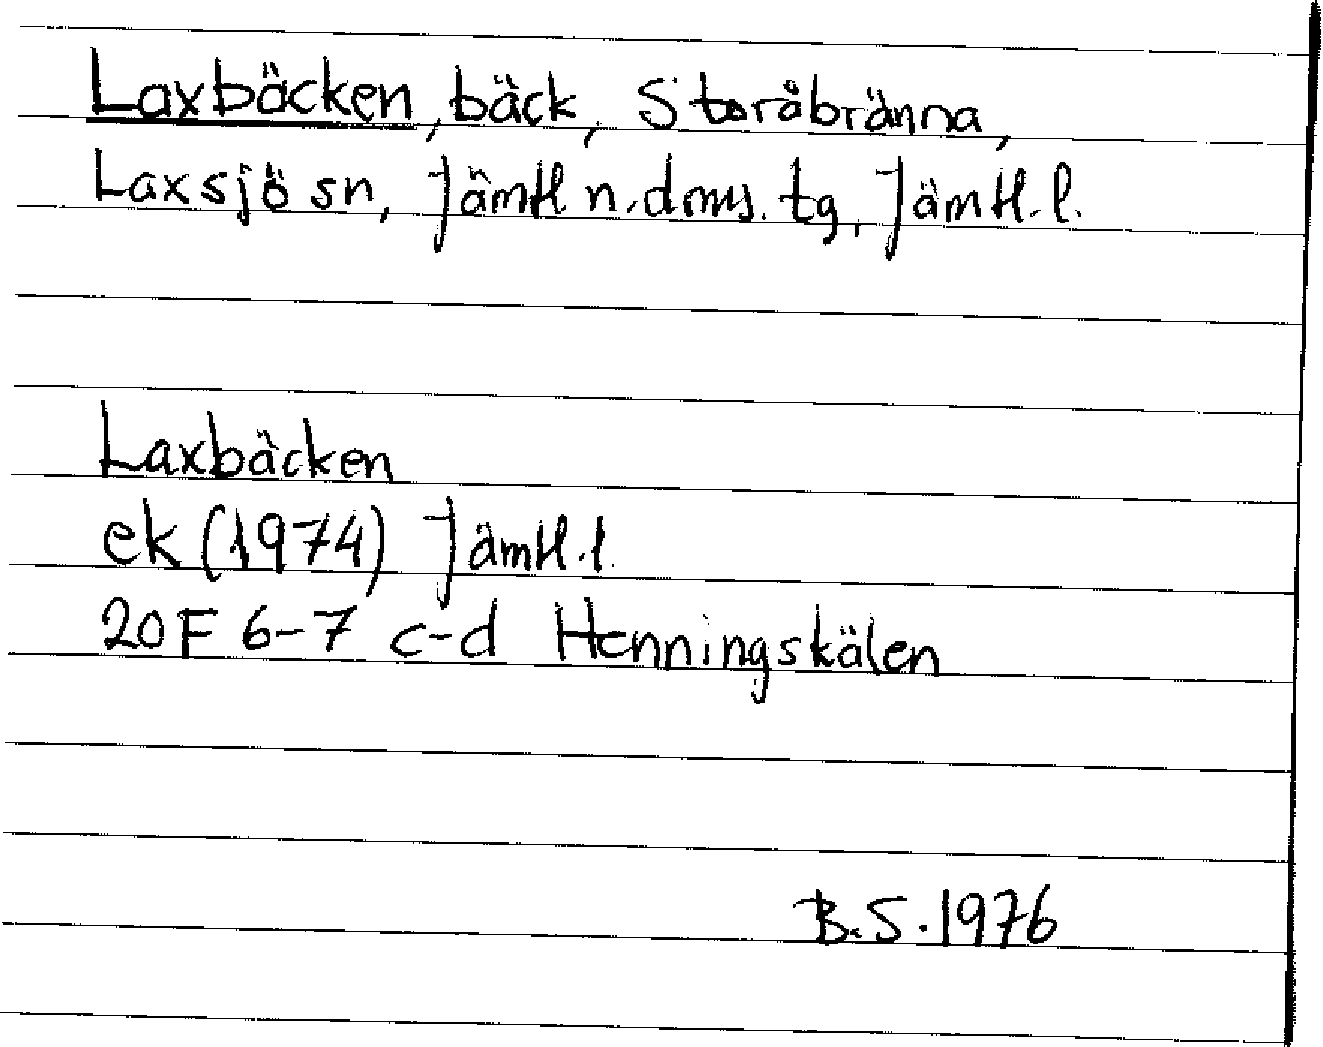 Laxbäcken, bäck, Storåbränna,
Laxsjö sn, Jämtl n. dms. tg, Jämtl. l.
Laxbäcken
ek (1974) Jämtl. l.
20F 6-7 c-d Henningskälen
B.S. 1976